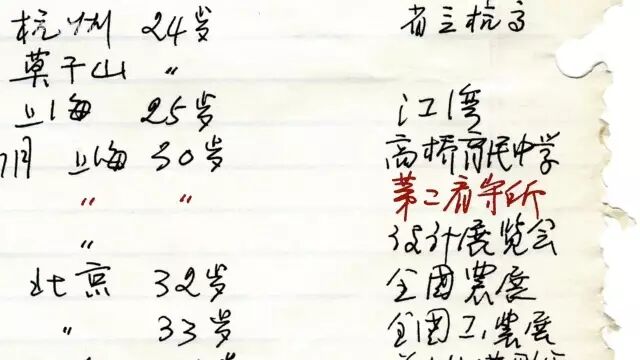 杭州 24岁 省立杭高
莫干山 〃
上海 25岁 江湾
月 上海 30岁 高桥育民中学
〃 〃 第二看守所
〃 设计展览会
北京 32岁 全國農展
〃 33岁 全国工農展